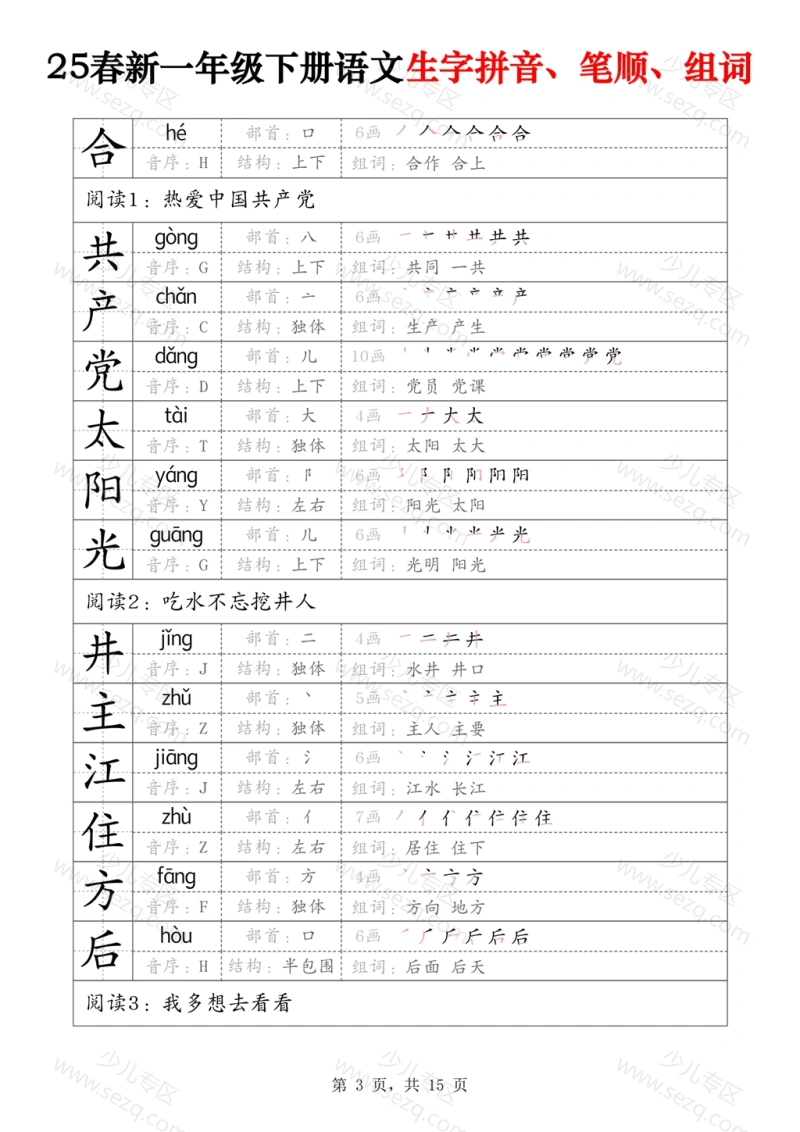 25春新一年级下册语文生字拼音、笔顺、组词
合 hé 部首：口 6画
音序：H 结构：上下 组词：合作 合上
阅读1：热爱中国共产党
共 gòng 部首：八 6画
音序：G 结构：上下 组词：共同 一共
产 chǎn 部首：亠 6画
音序：C 结构：独体 组词：生产 产生
党 dǎng 部首：儿 10画
音序：D 结构：上下 组词：党员 党课
太 tài 部首：大 4画
音序：T 结构：独体 组词：太阳 太大
阳 yáng 部首：阝 6画
音序：Y 结构：左右 组词：阳光 太阳
光 guāng 部首：儿 6画
音序：G 结构：上下 组词：光明 阳光
阅读2：吃水不忘挖井人
井 jǐng 部首：二 4画
音序：J 结构：独体 组词：水井 井口
主 zhǔ 部首：丶 5画
音序：Z 结构：独体 组词：主人 主要
江 jiāng 部首：氵 6画
音序：J 结构：左右 组词：江水 长江
住 zhù 部首：亻 7画
音序：Z 结构：左右 组词：居住 住下
方 fāng 部首：方 4画
音序：F 结构：独体 组词：方向 地方
后 hòu 部首：口 6画
音序：H 结构：半包围 组词：后面 后天
阅读3：我多想去看看
第 3 页，共 15 页
少儿专区
www.sezq.com